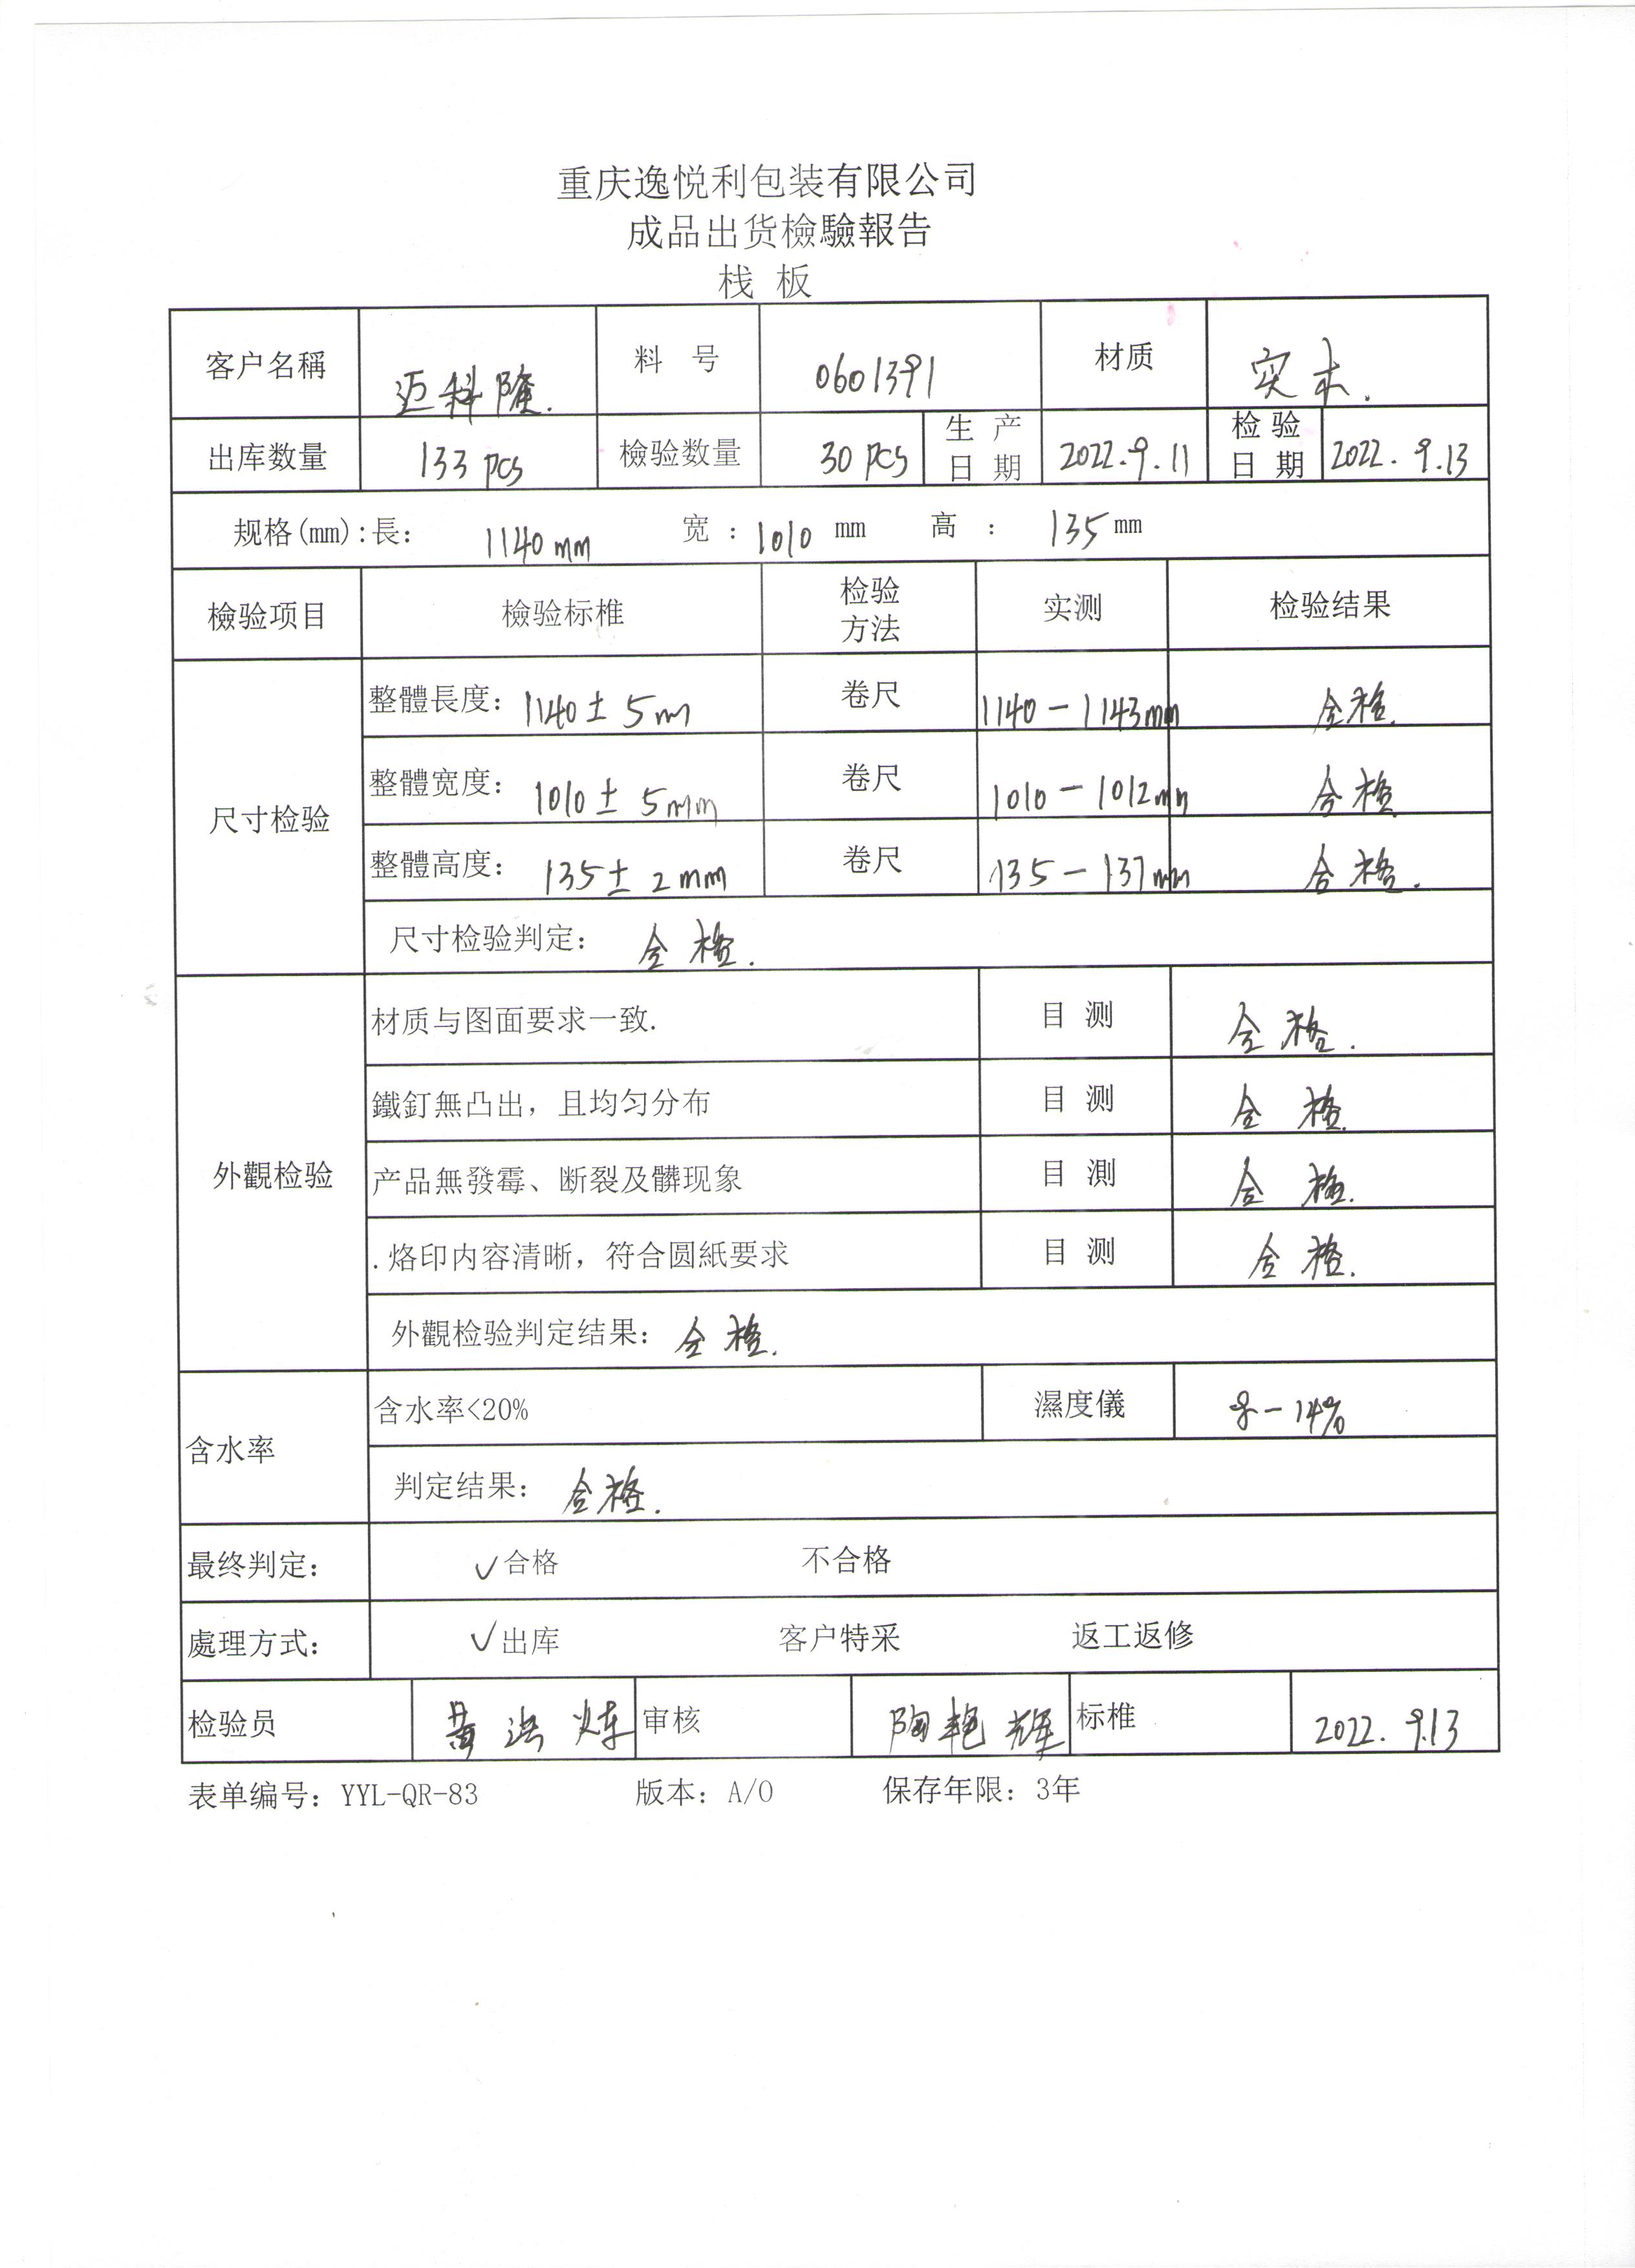 重庆逸悦利包装有限公司
成品出货檢驗報告
栈 板
客户名稱 迈科隆. 料 号 0601391 材质 实木.
出库数量 133 pcs 檢验数量 30 pcs 生产日期 2022.9.11 检验日期 2022.9.13
规格(mm):長: 1140 mm 宽:1010 mm 高: 135 mm
檢验项目 檢验标椎 检验方法 实测 检验结果
尺寸检验
整體長度: 1140 ± 5 m 卷尺 1140 - 1143mm 合格.
整體宽度: 1010 ± 5mm 卷尺 1010 - 1012mm 合格
整體高度: 135 ± 2 mm 卷尺 135 - 137mm 合格.
尺寸检验判定: 合格.
外觀检验
材质与图面要求一致. 目 测 合格.
鐵釘無凸出，且均匀分布 目 测 合格
产品無發霉、断裂及髒现象 目 測 合格.
.烙印内容清晰，符合圆紙要求 目 测 合格.
外觀检验判定结果: 合格.
含水率
含水率<20% 濕度儀 8-14%
判定结果: 合格.
最终判定: ✓合格 不合格
處理方式: ✓出库 客户特采 返工返修
检验员 黄 审核 陶艳辉 标椎 2022.9.13
表单编号: YYL-QR-83 版本: A/0 保存年限: 3年